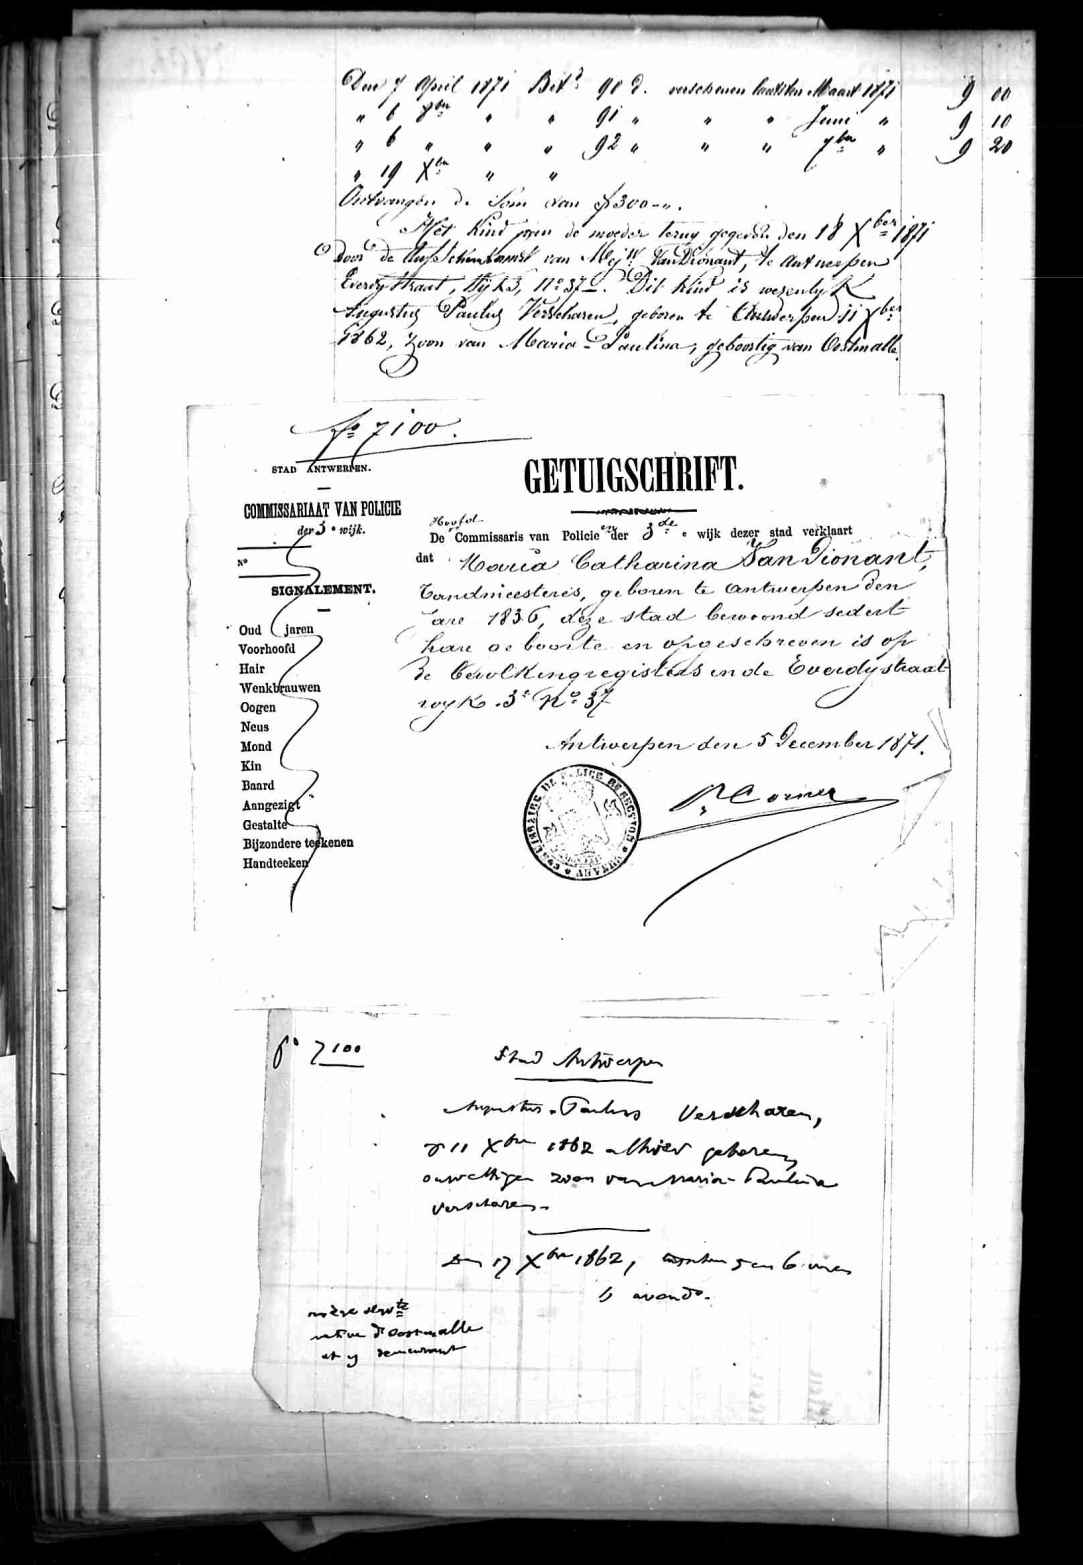 Den 7 April 1871 Bet.d 90 d. verschenen laatsten Maart 1871 9 00
" 6 7ber " " 91 " " " Juni " 9 10
" 6 " " " 92 " " " 7ber " 9 20
" 19 Xber " "
Ontvangen de Som van f 300-".
Het Kind aen de moeder terug gegeven den 18 Xber 1871
door de tusschenkomst van Mej.w VanDionant, te Antwerpen
Everdystraat, Wyk 3, No 37. Dit kind is wezenlyk
Augustus Paulus Verscharen, geboren te Antwerpen 11 Xber
1862, zoon van Maria-Paulina, geboortig van Oostmalle.
No 7100.
STAD ANTWERPEN.
COMMISSARIAAT VAN POLICIE
der 3e wijk.
No
SIGNALEMENT.
Oud jaren
Voorhoofd
Hair
Wenkbrauwen
Oogen
Neus
Mond
Kin
Baard
Aangezigt
Gestalte
Bijzondere teekenen
Handteeken
GETUIGSCHRIFT.
Hoofd
De Commissaris van Policie en der 3de wijk dezer stad verklaart
dat Maria Catharina Van Dionant,
Tandmeesteres, geboren te Antwerpen den
jare 1836, deze stad bewoond sedert
hare geboorte en opgeschreven is op
de bevolkingregisters in de Everdystraat
wyk 3e No 37
Antwerpen den 5 December 1871.
COMMISSAIRE DE POLICE
ANVERS
No 7100
Stad Antwerpen
Augustus-Paulus Verscharen,
d 11 Xber 1862 alhier geboren,
onwettigen zoon van Maria-Paulina
Verscharen.
Den 17 Xber 1862, tusschen 5 en 6 uren
's avonds.
mère servte
native d'Oostmalle
et y demeurant